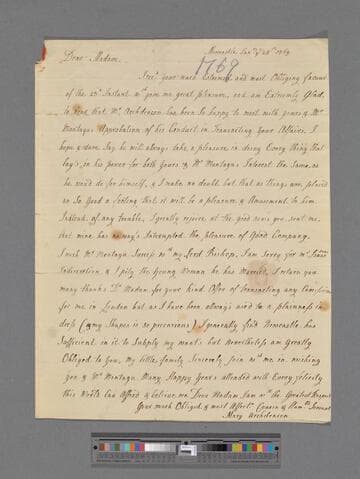 Newcastle Jan. ye 28th 1769
Dear Madam
1769
I recd your much Esteemed and most Obliging favour
of the 23d Instant wch gave me great pleasure, and am Extremely Glad
to find that Mr. Archdeacon has been so happy to meet with yours & Mr.
Montagu Approbation of his Conduct in Transacting Your Affairs. I
hope & dare Say he will always take a pleasure in doing Every thing that
lay's in his power for both Yours & Mr. Montagu's Interest the Same as
he wou'd do for himself, & I make no doubt but that as things are placed
on So Good a footing that it will be a pleasure & Amusement to him
Instead of any trouble, I greatly rejoice at the good news you sent me,
that mine has no way's Interrupted the pleasure of Good Company.
I wish Mr. Montagu Success wth my Lord Bishop, I am Sorry for Mr.
Indiscretion & I pity the Young Woman he has Married, I return you
many thanks Dr. Madam for your kind Offer of transacting any
for me in London but as I have been always used to a plainness in
dress (& my Shape is so precarious) I generally find Newcastle has
Sufficient in it to Supply my wants but Nevertheless am Greatly
Obliged to you, My little family Sincerely Join wth me in wishing
you & Mr. Montagu Many Happy Years attended with Every felicity
this World Can Afford & believe me Dear Madam I am wth the Greatest Respect
Your much Obliged & most Affectt. Cousin & Humle. Servant
Mary Archdeacon